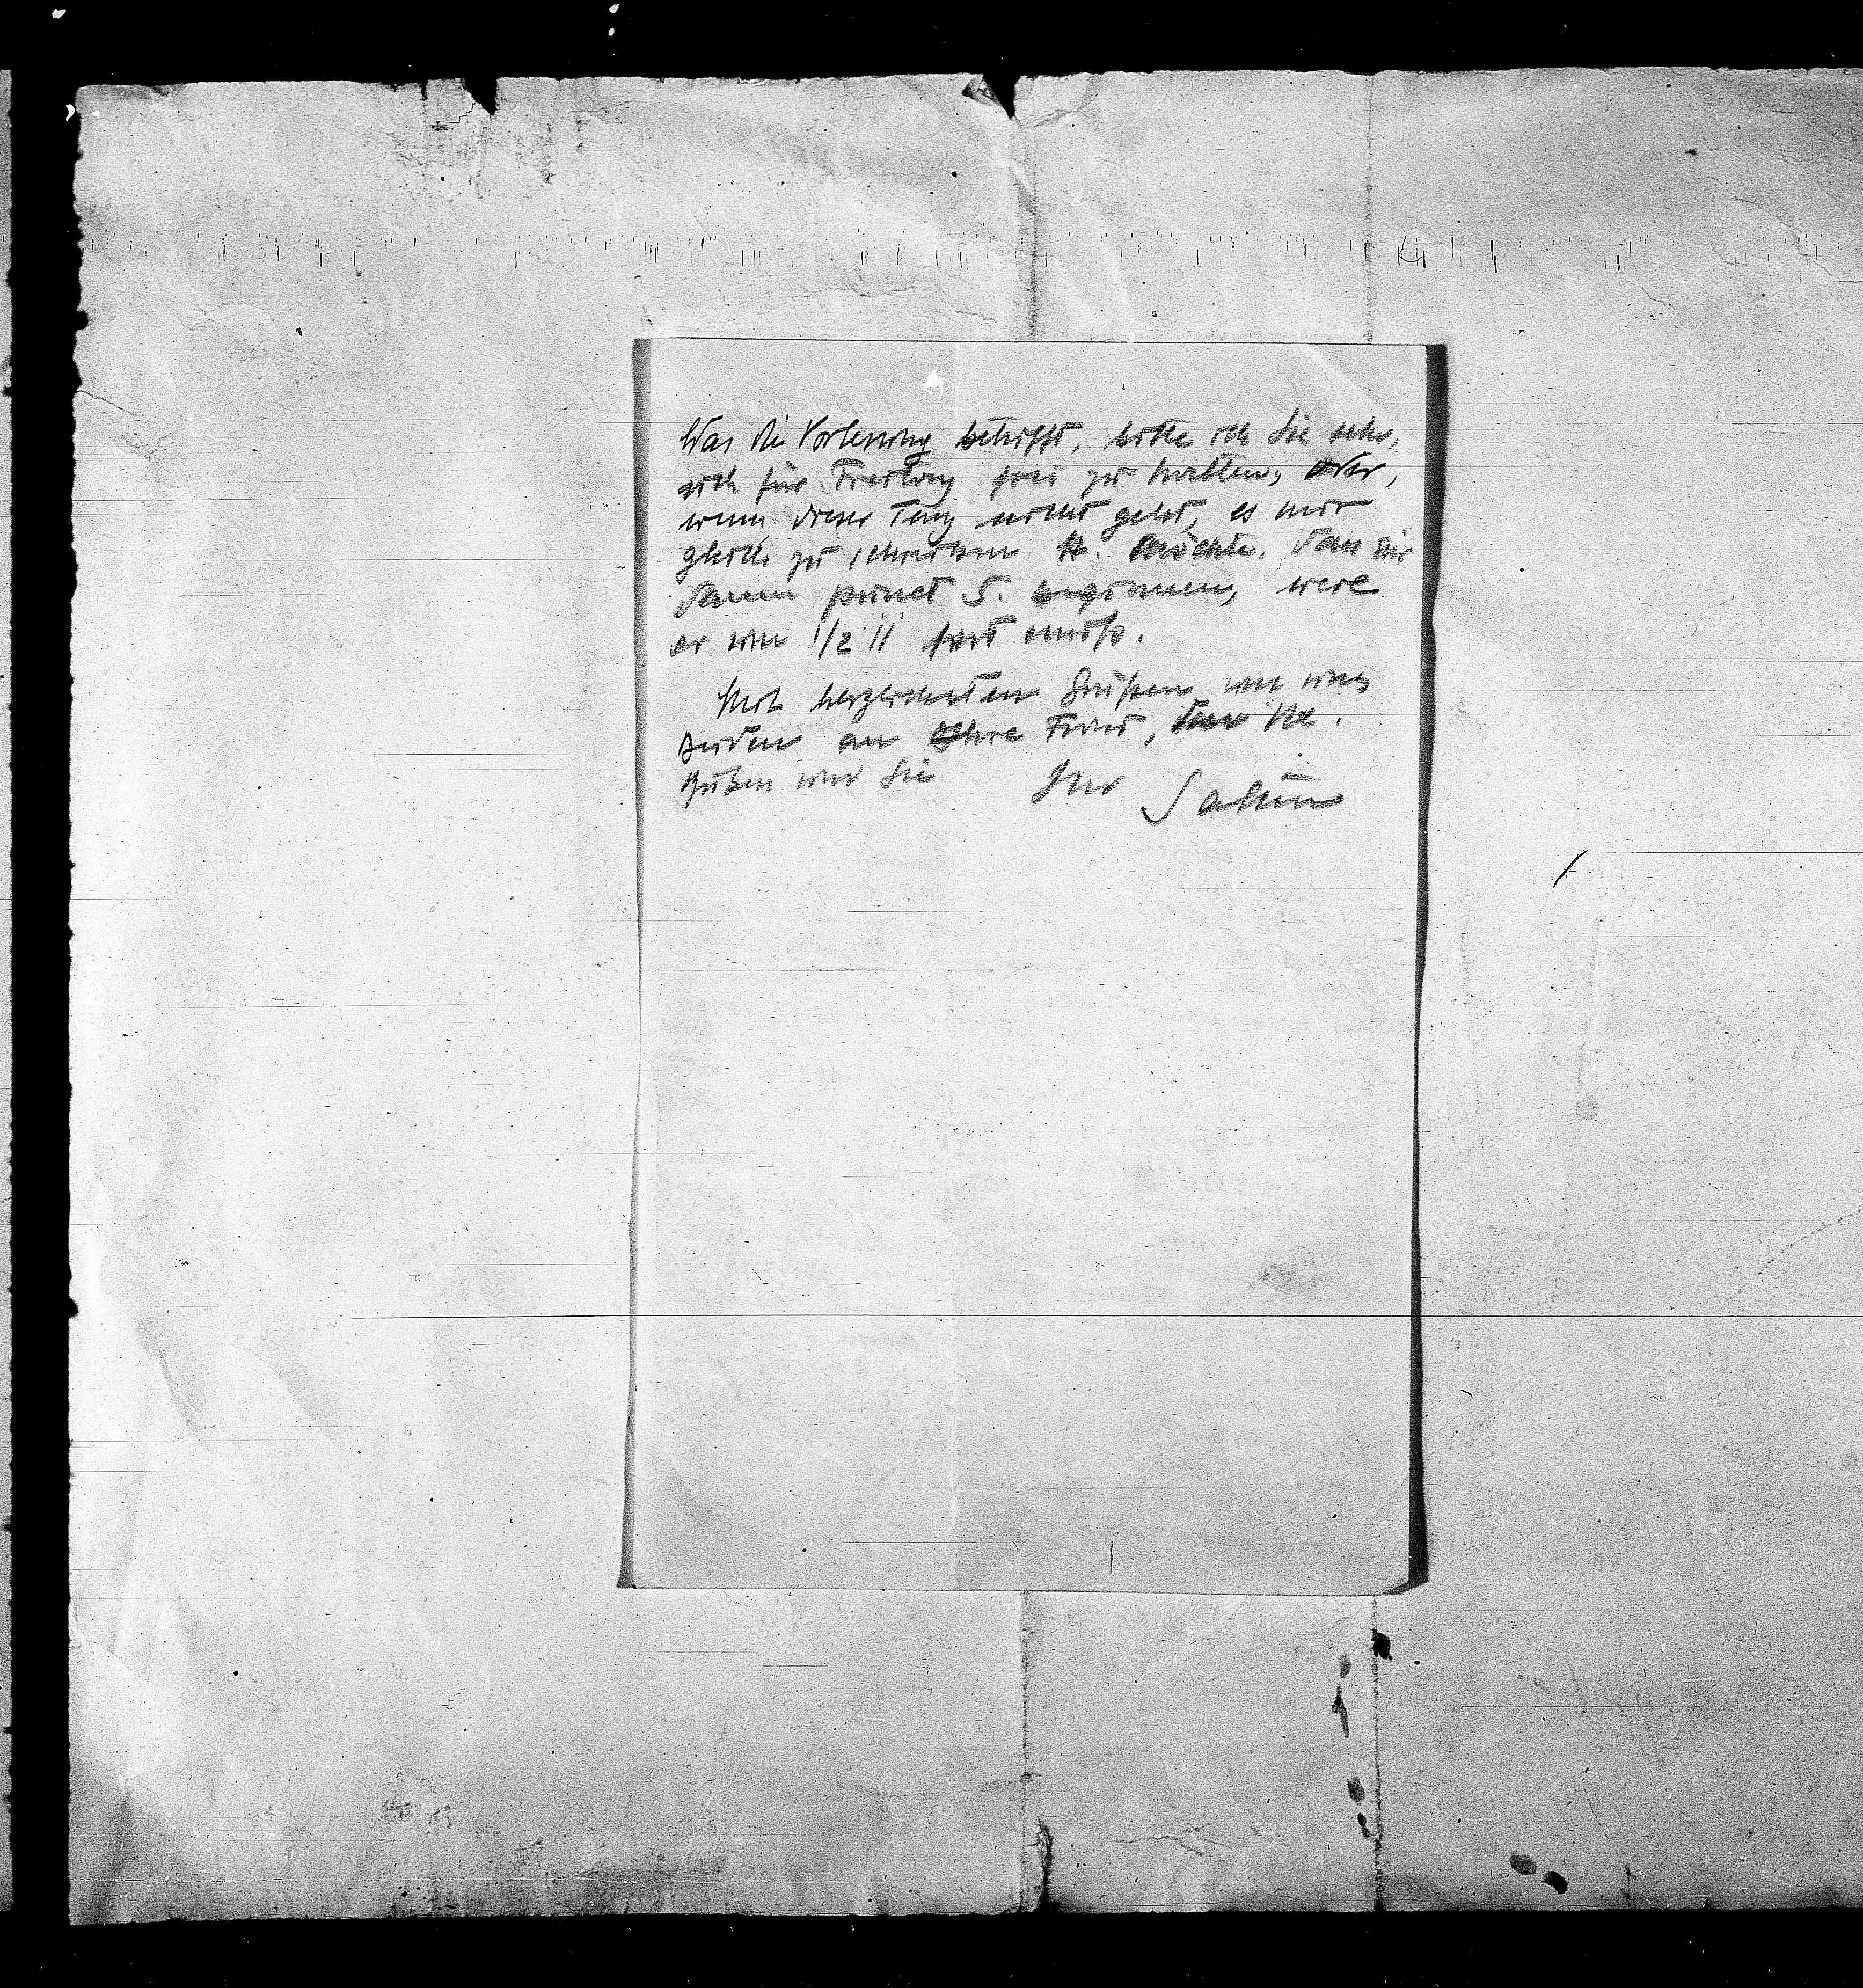 Was die Vorlesung betrifft, bitte ich Sie sehr,
sich für Freitag frei zu halten, oder,
wenn dieser Tag nicht geht, es mir
gleich zu schreiben. H. möchte, dass wir
dann punct 5. beginnen, weil
er um 1/2 11 fort muß.
Mit herzlichsten Grüßen von uns
beiden an Ihre Frau,
und Sie Ihr Salten